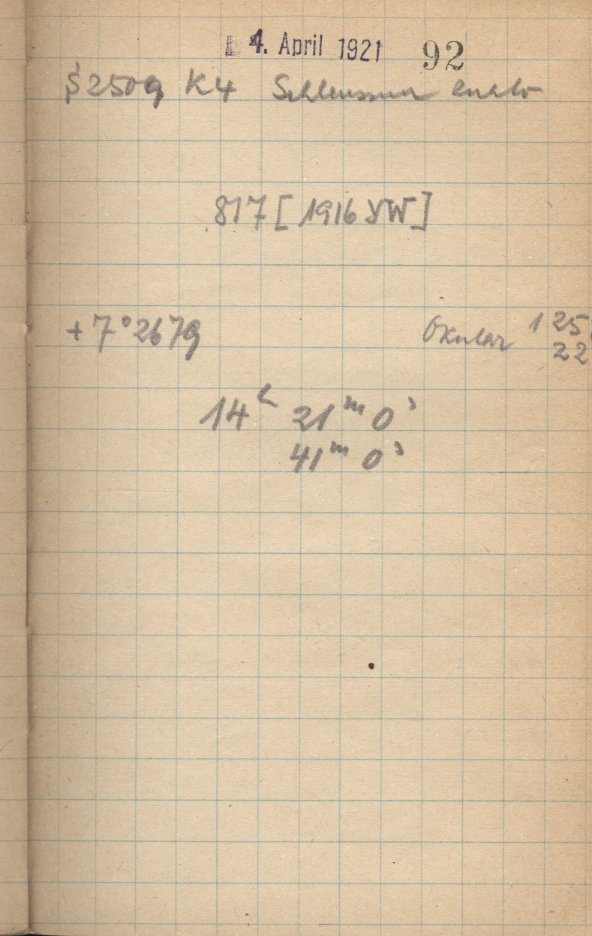 4. April 1921 92
B2509 K4 Schleussner
817 [1916 YW]
+7°2679 Okular 125
22
14h 21m 0s
41m 0s